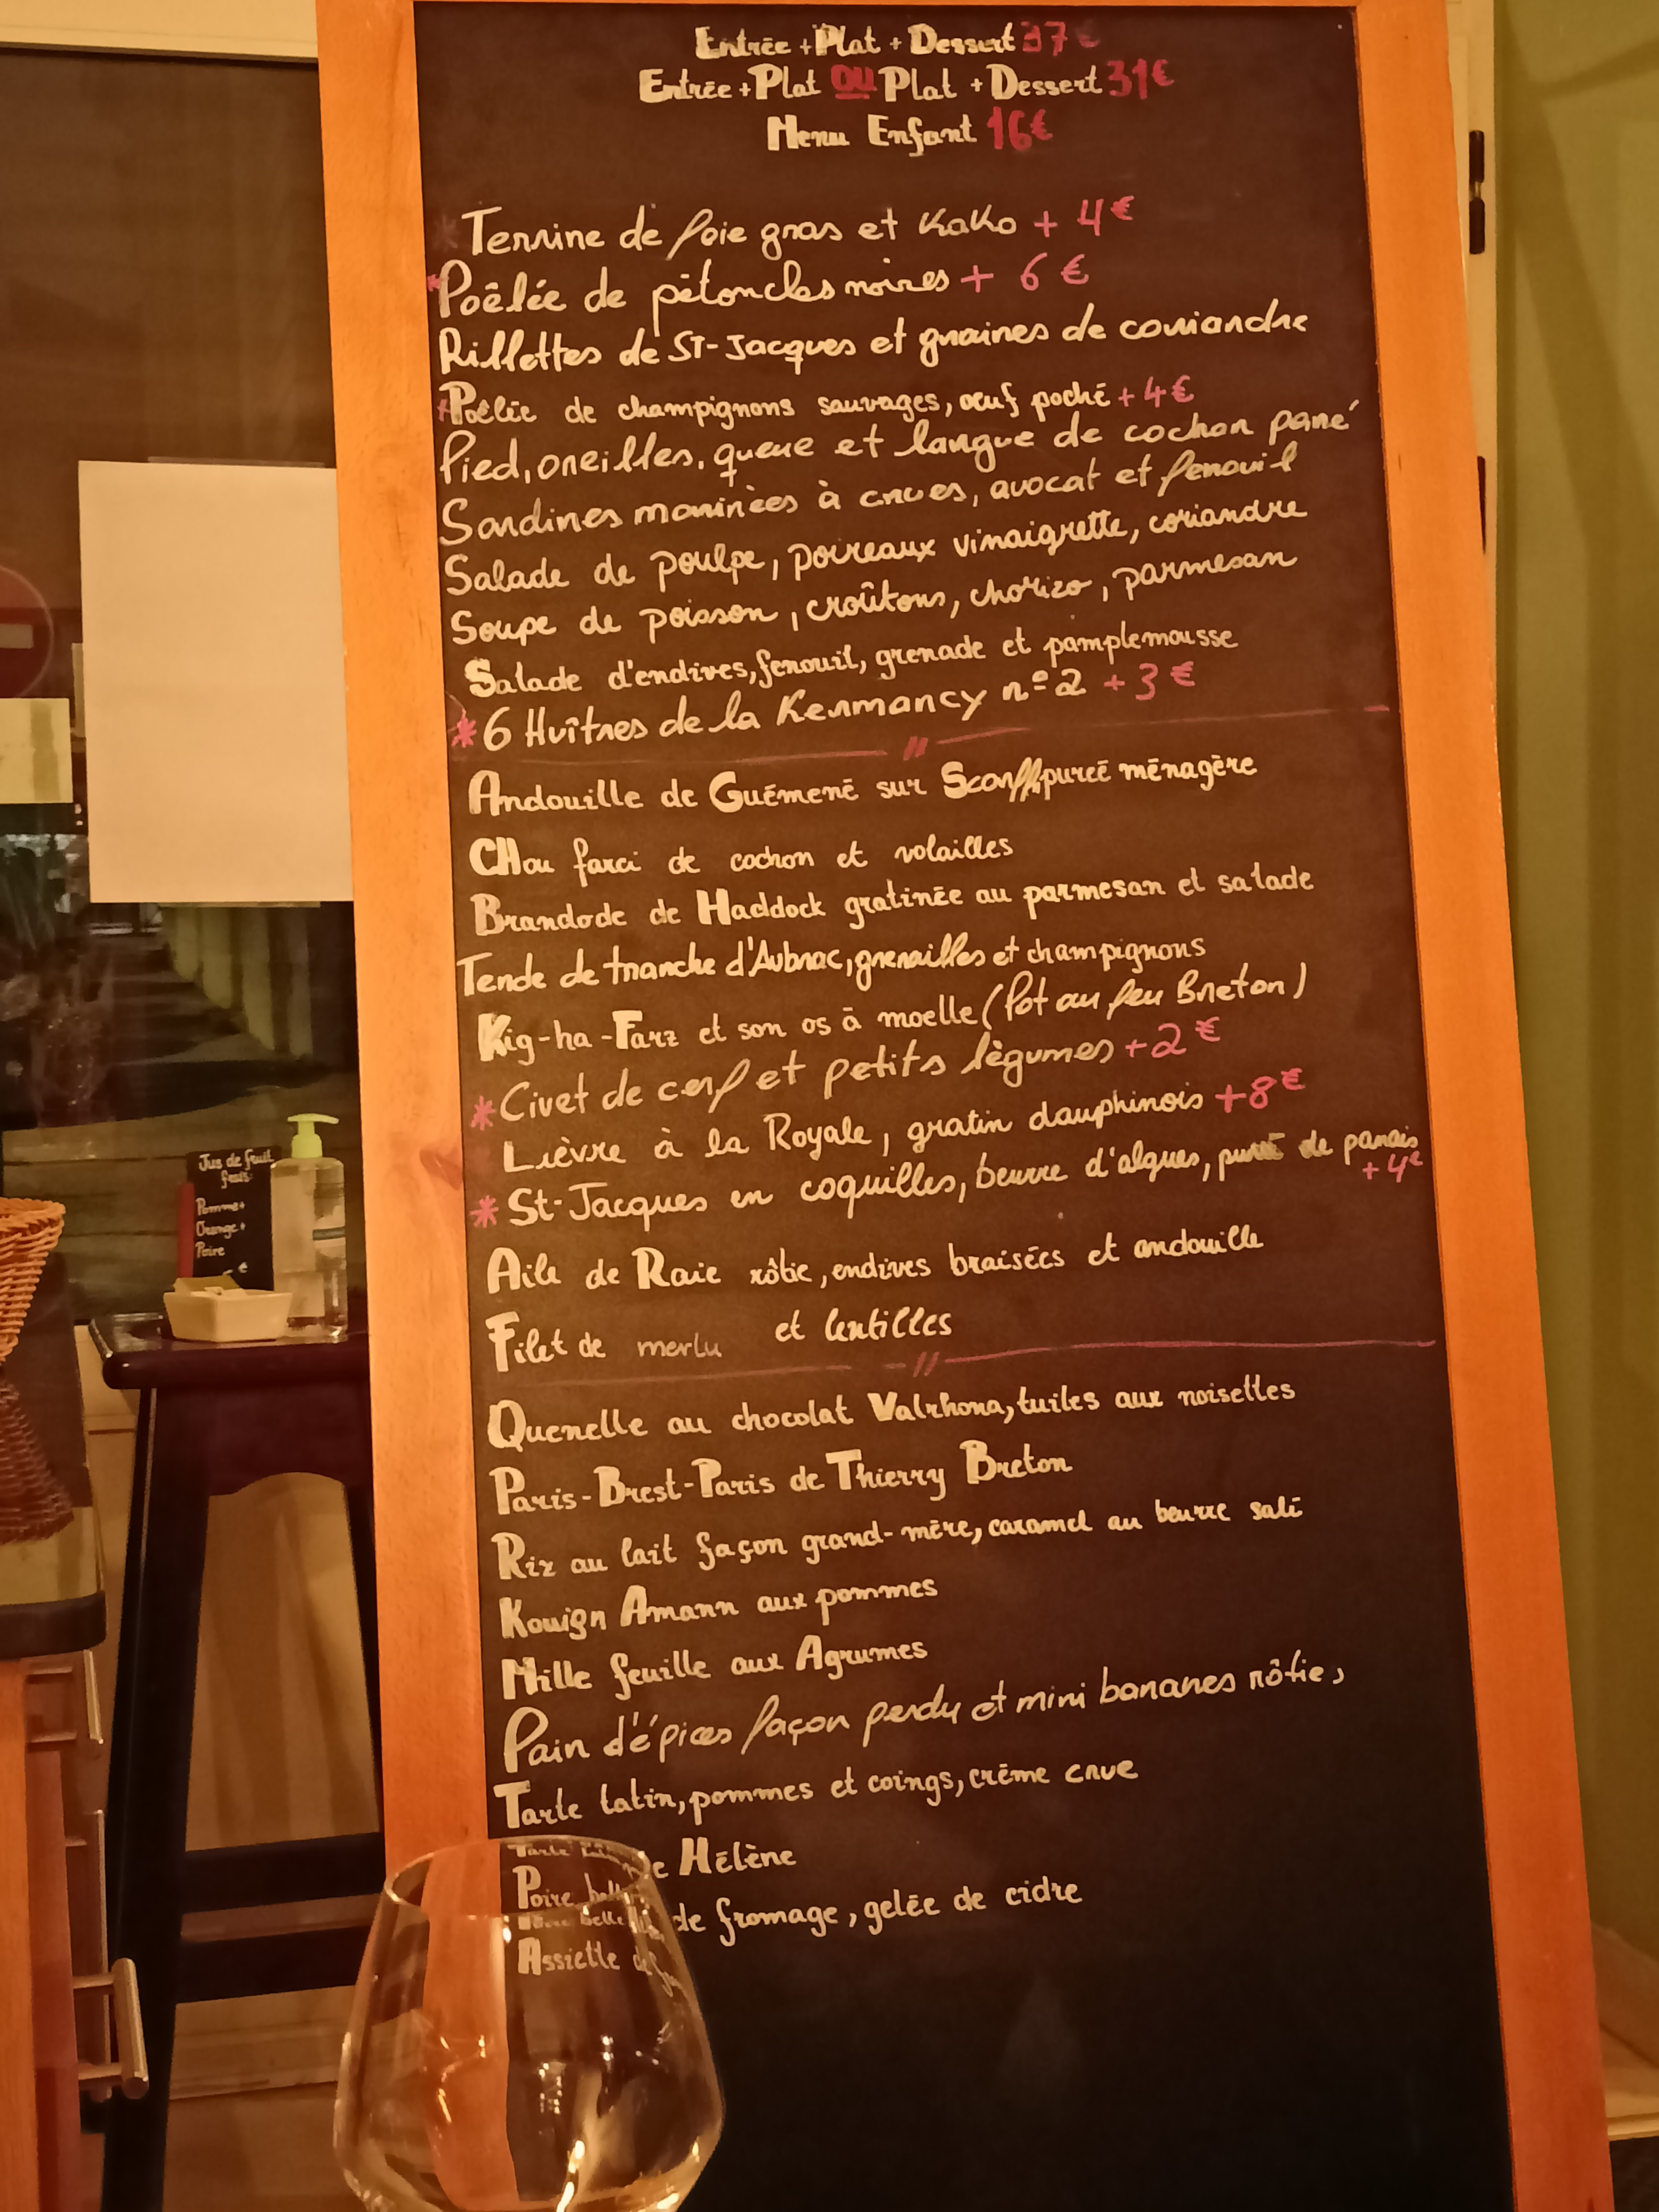 Entrée + Plat + Dessert 37€
Entrée + Plat OU Plat + Dessert 31€
Menu Enfant 16€
Terrine de foie gras et KaKo + 4€
*Poêlée de pétoncles noires + 6€
Rillettes de St-Jacques et graines de coriandre
*Poêlée de champignons sauvages, œuf poché + 4€
Pied, oreilles, queue et langue de cochon pané
Sardines marinées à crues, avocat et fenouil
Salade de poulpe, poireaux vinaigrette, coriandre
Soupe de poisson, croûtons, chorizo, parmesan
Salade d'endives, fenouil, grenade et pamplemousse
*6 Huîtres de la Kermancy n°2 + 3€
//
Andouille de Guémené sur Scorff, purée ménagère
CHou farci de cochon et volailles
Brandade de Haddock gratinée au parmesan et salade
Tende de tranche d'Aubrac, grenailles et champignons
Kig-ha-Farz et son os à moelle (Pot au feu Breton)
*Civet de cerf et petits légumes +2€
Lièvre à la Royale, gratin dauphinois +8€
*St-Jacques en coquilles, beurre d'algues, purée de panais
+4€
Aile de Raie rôtie, endives braisées et andouille
Filet de merlu et lentilles
//
Quenelle au chocolat Valrhona, tuiles aux noisettes
Paris-Brest-Paris de Thierry Breton
Riz au lait façon grand-mère, caramel au beurre salé
Kouign Amann aux pommes
Mille feuille aux Agrumes
Pain d'épices façon perdu et mini bananes rôties
Tarte tatin, pommes et coings, crème crue
Poire belle Hélène
Assiette de fromage, gelée de cidre
Jus de fruit
frais:
Pomme+
Orange+
Poire
€